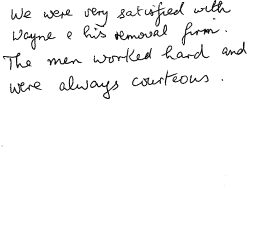 We were very satisfied with
Wayne & his removal firm.
The men worked hard and
were always courteous.